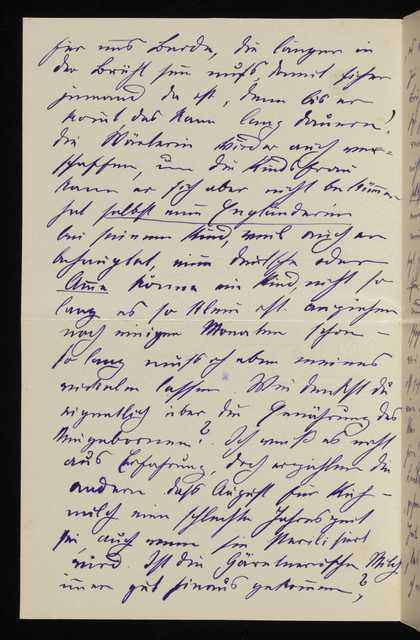 für uns beide, die länger in
der Brühl sein muß, damit sicher
jemand da ist, denn bis er
kommt das kann lang dauern!
die Wärterin würde er auch ver-
schaffen, um die Kindsfrau
kann er sich aber nicht bekümmern
hat selbst eine Engländerin
bei seinem Kind, weil auch er
behauptet, eine deutsche oder
Amme könne ein Kind, nicht so
lang es so klein ist. anziehen
nach einigen Monaten schon –
so lang muß ich eben meines
lassen. Wie denkst du
eigentlich über die Ernährung des
Neugebornen? Ich weiß es nicht
aus Erfahrung, doch erzählen die
andern daß August für Kuh-
milch eine schlechte Jahreszeit
sei, auch wenn sie sterilisirt
wird. Ist die Gärtnerische Milch
immer gut hinaus gekommen?